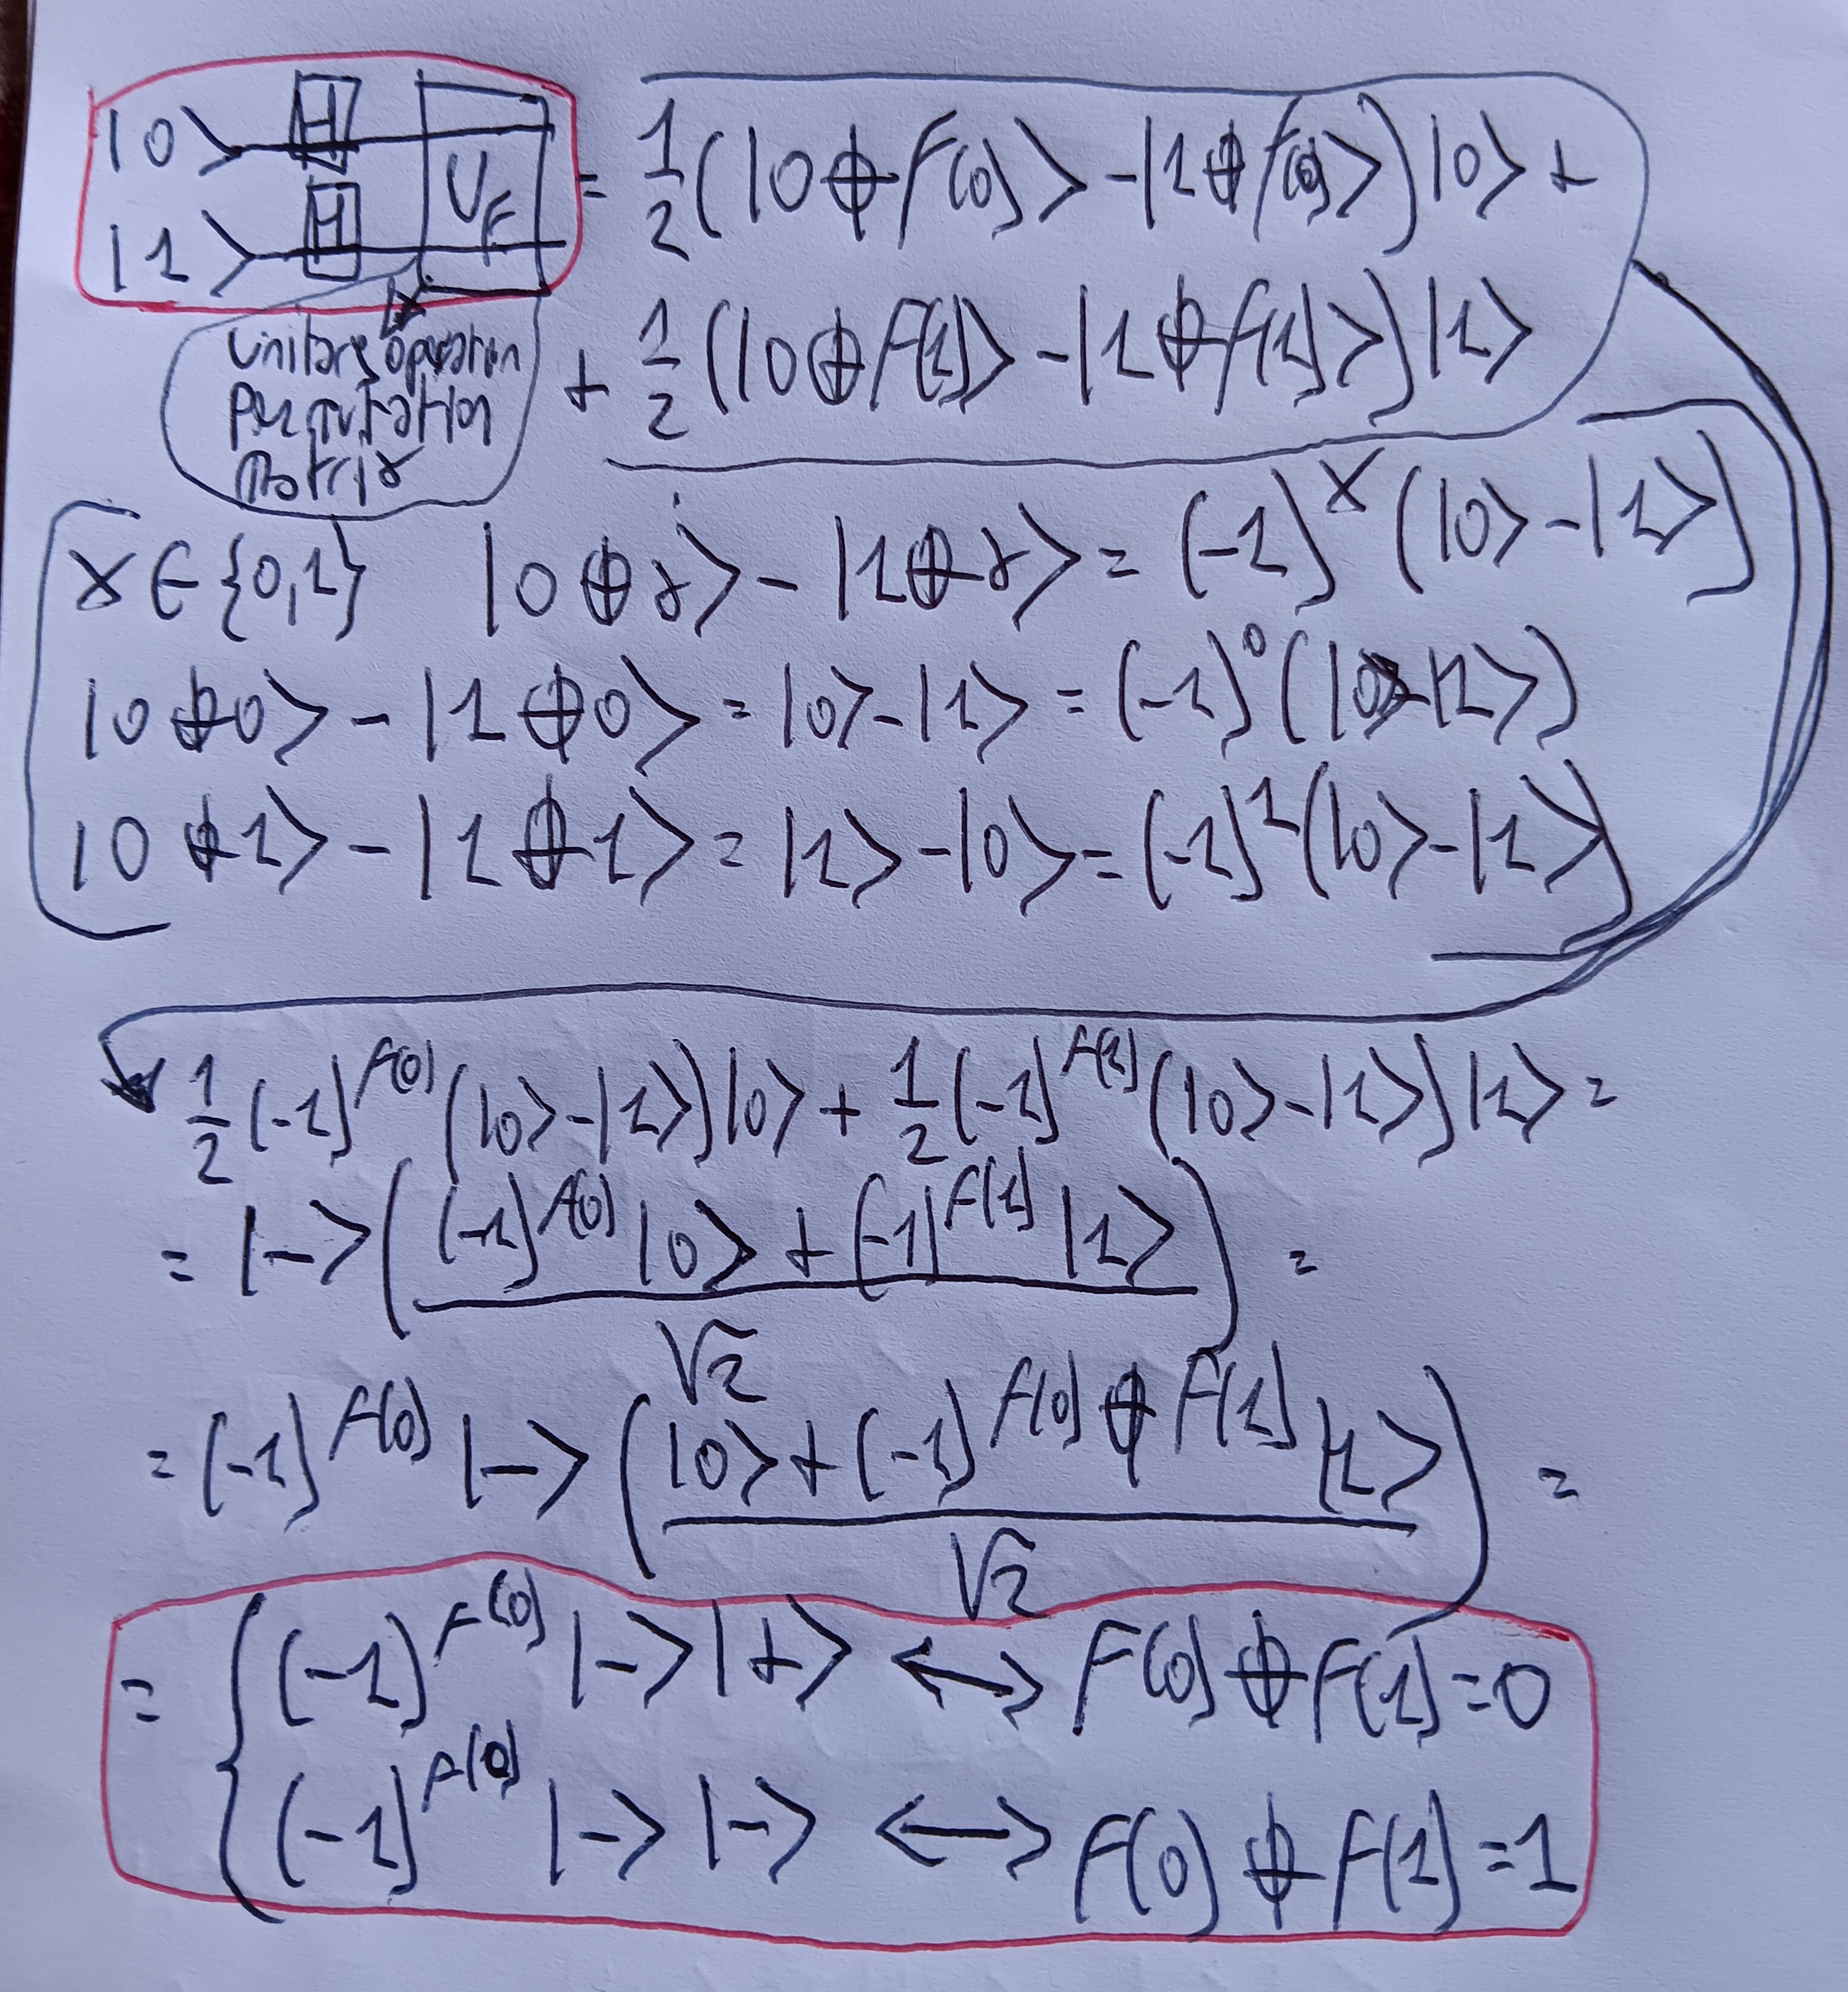 |0> H U_F = 1/2 (|0 ⊕ f(0)> - |1 ⊕ f(0)>) |0> +
|1> H
+ 1/2 (|0 ⊕ f(1)> - |1 ⊕ f(1)>) |1>
Unitary operation
Permutation
Matrix
x ∈ {0,1} |0 ⊕ x> - |1 ⊕ x> = (-1)^x (|0> - |1>)
|0 ⊕ 0> - |1 ⊕ 0> = |0> - |1> = (-1)^0 (|0> - |1>)
|0 ⊕ 1> - |1 ⊕ 1> = |1> - |0> = (-1)^1 (|0> - |1>)
1/2 (-1)^f(0) (|0> - |1>) |0> + 1/2 (-1)^f(1) (|0> - |1>) |1> =
= |-> ( ((-1)^f(0) |0> + (-1)^f(1) |1>) / √2 ) =
= (-1)^f(0) |-> ( (|0> + (-1)^(f(0) ⊕ f(1)) |1>) / √2 ) =
= { (-1)^f(0) |-> |+> ↔ f(0) ⊕ f(1) = 0
(-1)^f(0) |-> |-> ↔ f(0) ⊕ f(1) = 1